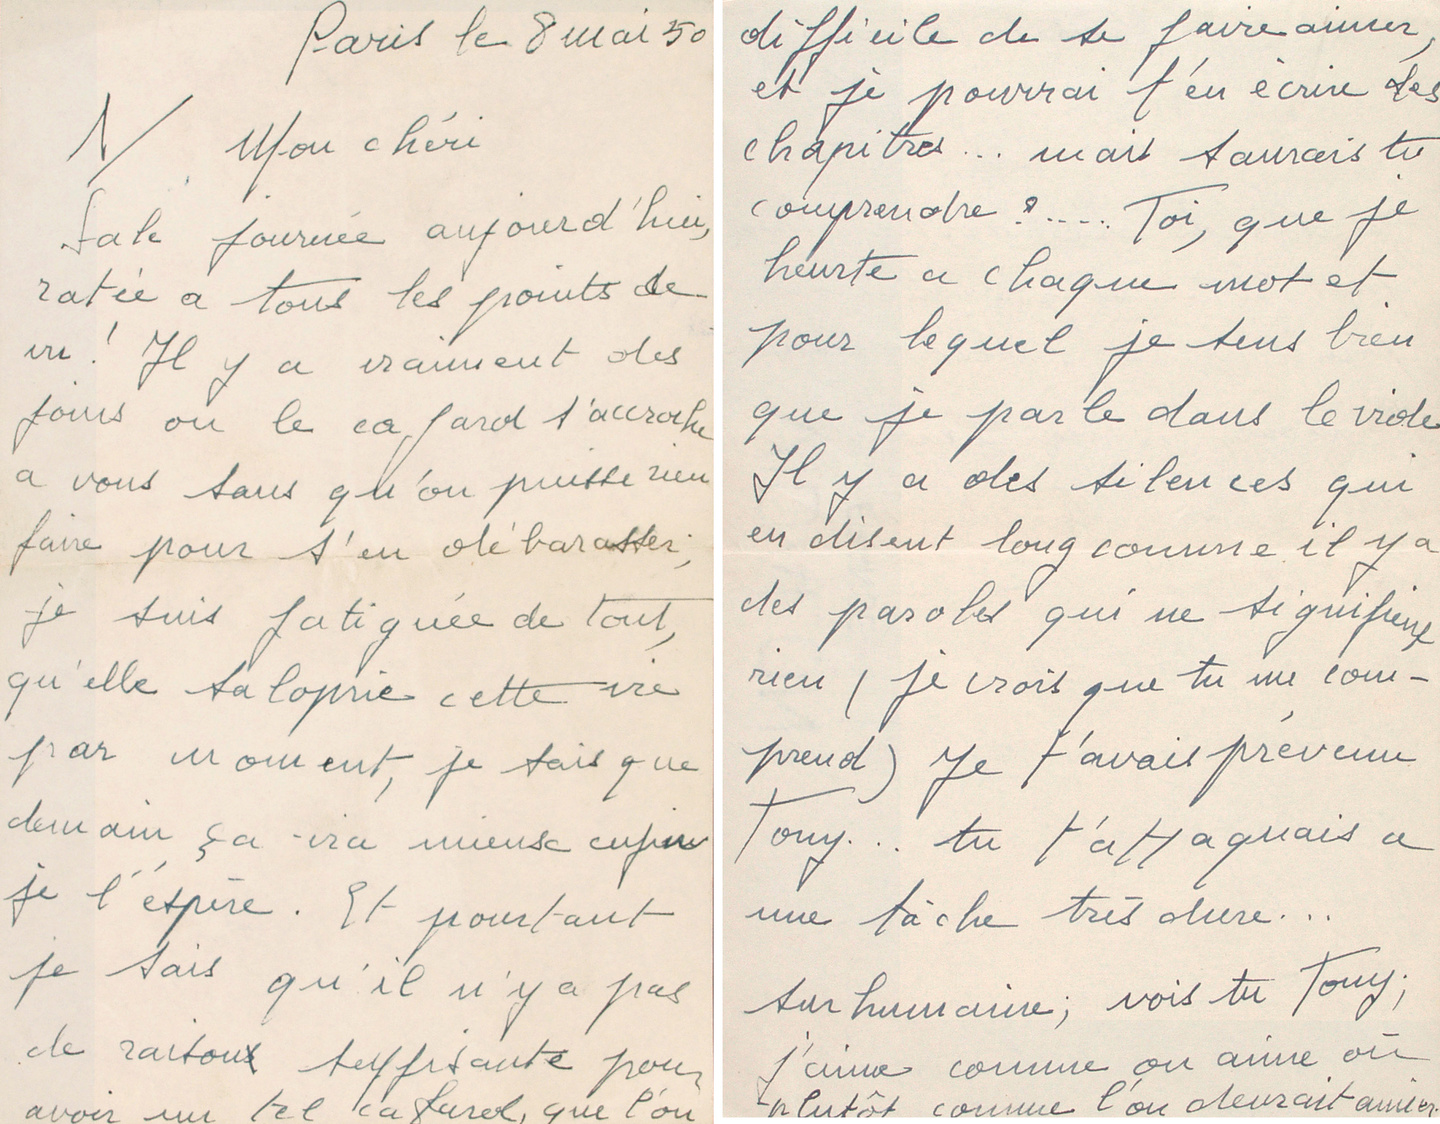 Paris le 8 mai 50
N/ Mon chéri
Sale journée aujourd'hui,
ratée a tous les points de
vu ! Il y a vraiment des
jours ou le cafard s'accroche
a vous sans qu'on puisse rien
faire pour s'en débarasser;
je suis fatiguée de tout,
qu'elle saloprie cette vie
par moment, je sais que
demain ça ira mieux enfin
je l'éspère. Et pourtant
je sais qu'il n'y a pas
de raisons suffisante pour
avoir un tel cafard, que l'on
difficile de se faire aimer,
et je pourrai t'en écrire des
chapitres... mais saurais tu
comprendre ?..... Toi, que je
heurte a chaque mot et
pour lequel je sens bien
que je parle dans le vide
Il y a des silences qui
en disent long comme il y a
des paroles qui ne signifient
rien ( je crois que tu me com-
prend) Je t'avais prévenu
Tony... tu t'attaquais a
une tâche très dure...
surhumaine; vois tu Tony;
j'aime comme on aime où
plutôt comme l'on devrait aimer.